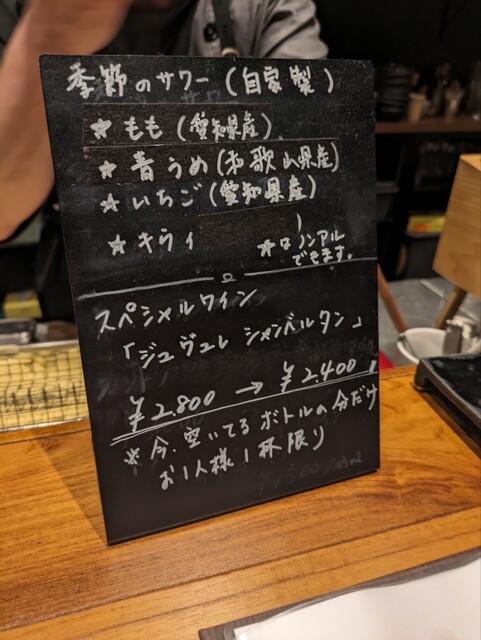 季節のサワー(自家製)
☆もも(愛知県産)
☆青うめ(和歌山県産)
☆いちご(愛知県産)
☆キウイ )
☆はノンアル
できます。
スペシャルワイン
「ジュヴュレ シャンベルタン」
¥2.800 → ¥2.400
※今.空いてるボトルの分だけ
お1人様1杯限り